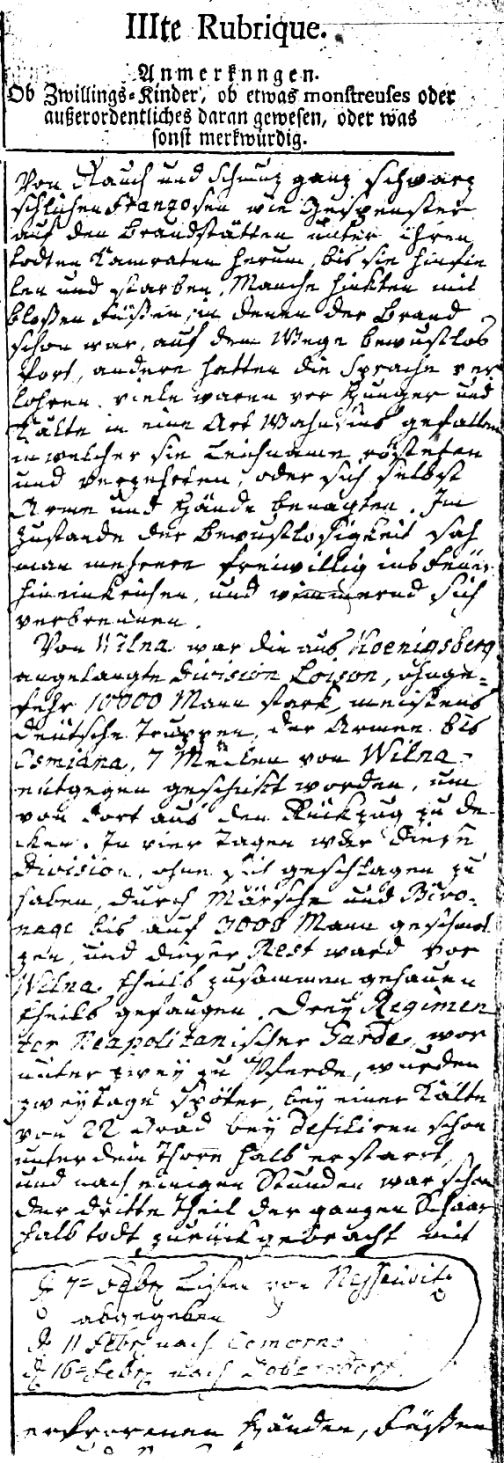 IIIte Rubrique.
Anmerknngen.
Ob Zwillings-Kinder, ob etwas monstreuses oder
außerordentliches daran gewesen, oder was
sonst merkwürdig.
Von Rauch und Schmuz ganz schwarz
schlichen Franzosen wie Gespenster
auf den Brandstätten unter ihren
todten Kamraten herum, bis sie hinfie
len und starben. Manche hinkten mit
bloßen Füßen, in denen der Brand
schon war, auf dem Wege bewustlos
fort, andere hatten die Sprache ver
lohren, viele waren vor Hunger und
Kälte in eine Art Wahnsins gefallen
in welcher sie Leichname rösteten
und verzehrten, oder sich selbst
Arme und Hände benagten. Im
Zustande der Bewustlosigkeit sah
man mehrere freiwillig ins Feüer
hineinkriechen, und wimmernd sich
verbrennen.
Von Wilna war die aus Koenigsberg
angelangte Division Loison, ohnge-
fehr 10000 Mann stark, meistens
deütsche Truppen, der Armee bis
Osmiana, 7 Meilen von Wilna
entgegen geschikt worden, um
von dort aus den Rükzug zu de-
cken. In vier Tagen war diese
Division, ohne sich geschlagen zu
haben, durch Märsche und Bivo-
naqe bis auf 3000 Mann geschmol
zen, und dieser Rest ward vor
Wilna theils zusammen gehauen
theils gefangen. Drey Regimen
ter Neapolitanischer Garde, wor
unter zwey zu Pferde, wurden
zwey Tage später, bey einer Kälte
von 22 Grad bey defiliren schon
unter dem Thore halb erstarrt,
und nach einigen Stunden war schon
der dritte Theil der ganzen Schaar
halb todt zurük gebracht mit
7= Febr von
abgegeben
11 Febr nach Comorno
16= Febr nach
erfrornen Händen, Füßen